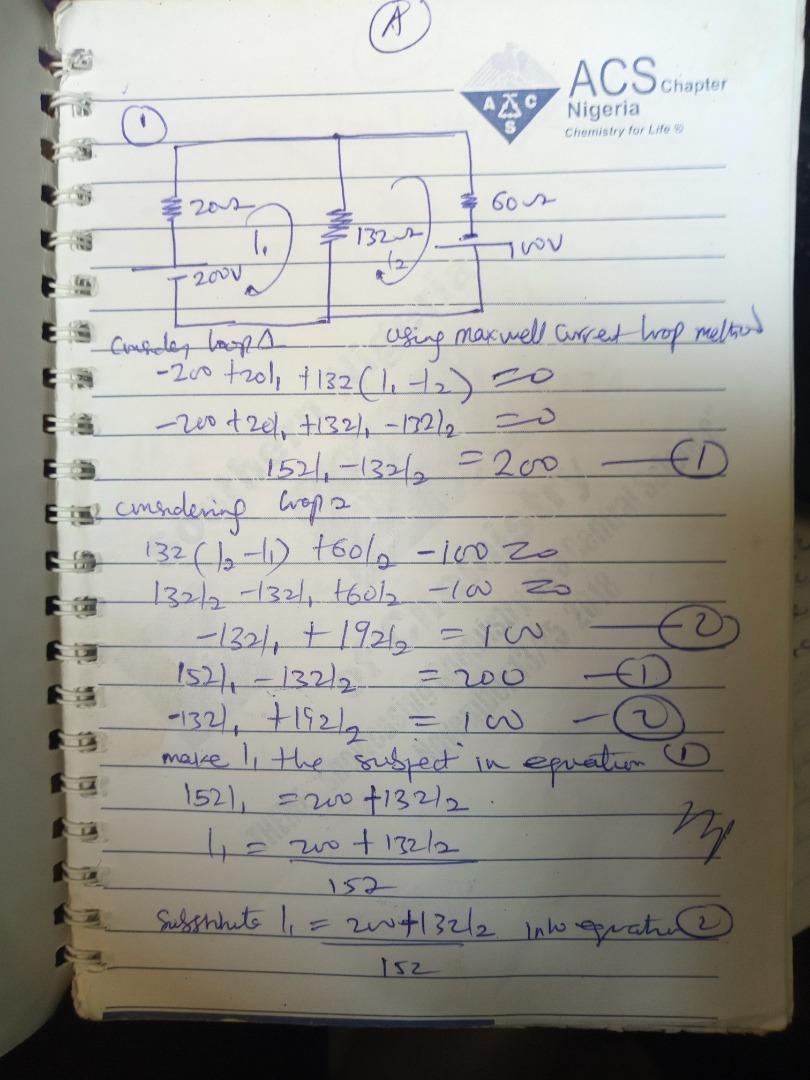 A
ACS Chapter
Nigeria
Chemistry for Life ®
A C S
1
20Ω
132Ω
60Ω
I₁
I₂
200V
100V
Consider loop 1 using maxwell current loop method
-200 + 20I₁ + 132(I₁ - I₂) = 0
-200 + 20I₁ + 132I₁ - 132I₂ = 0
152I₁ - 132I₂ = 200 — 1
considering loop 2
132(I₂ - I₁) + 60I₂ - 100 = 0
132I₂ - 132I₁ + 60I₂ - 100 = 0
-132I₁ + 192I₂ = 100 — 2
152I₁ - 132I₂ = 200 — 1
-132I₁ + 192I₂ = 100 — 2
make I₁ the subject in equation 1
152I₁ = 200 + 132I₂
I₁ = 200 + 132I₂
152
Substitute I₁ = 200 + 132I₂ into equation 2
152